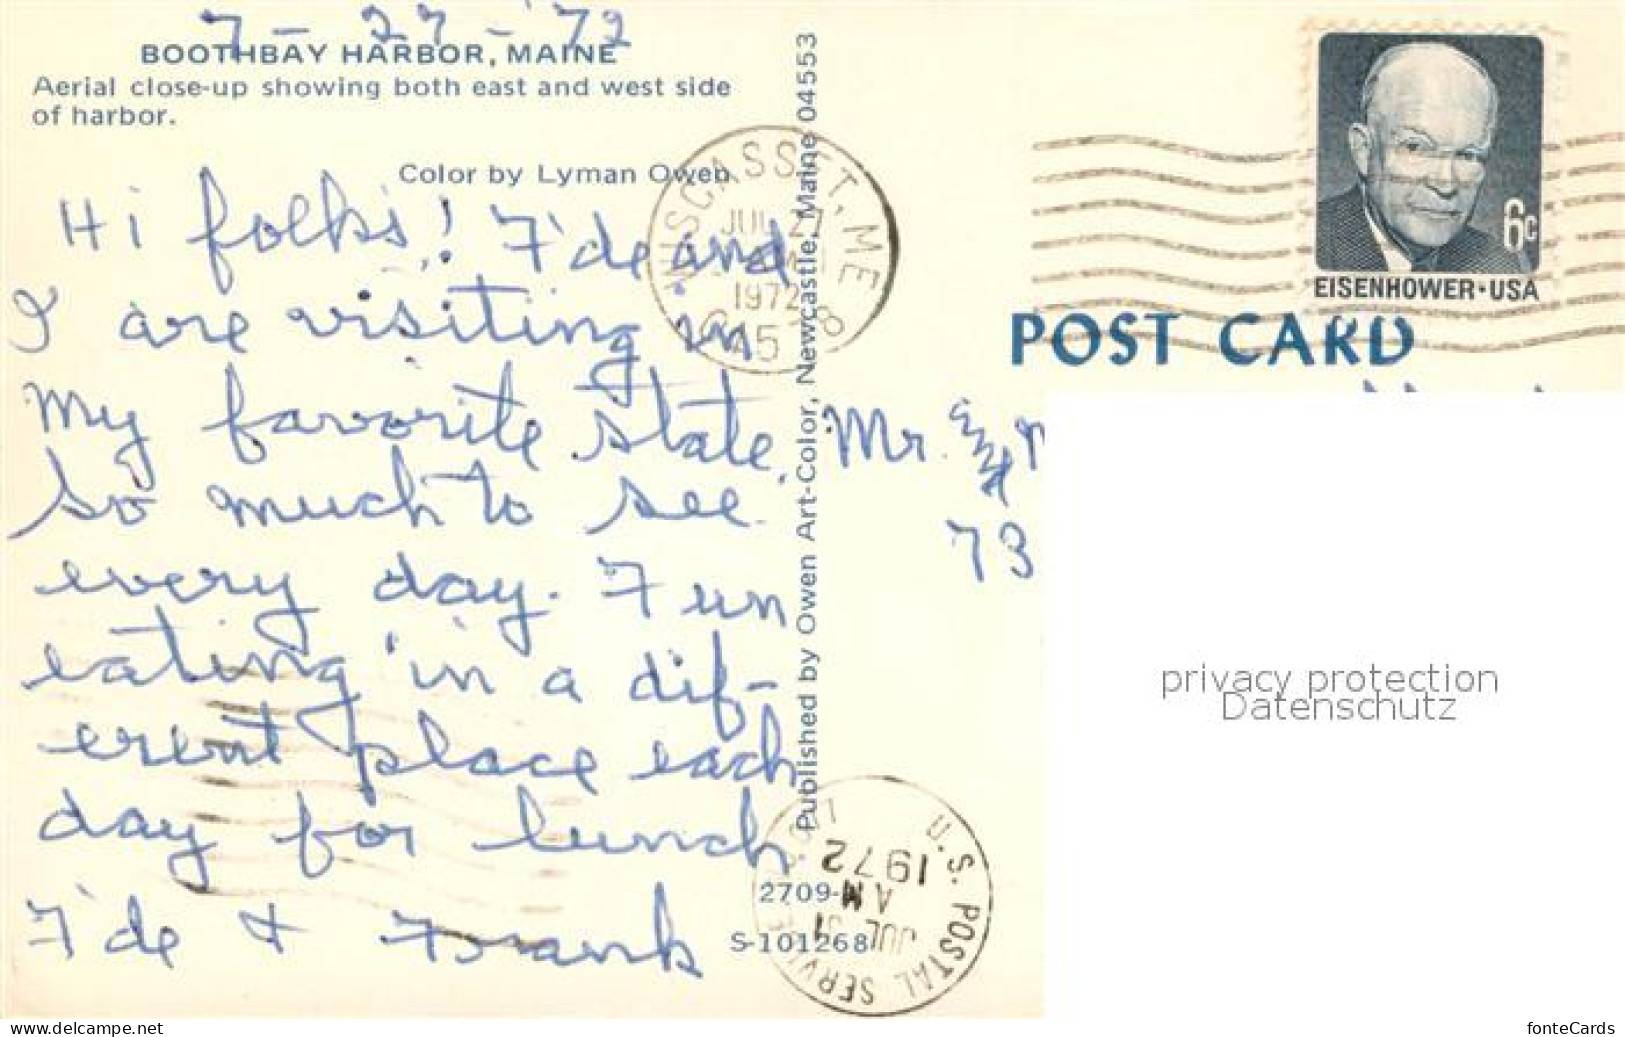 7-27-'72
BOOTHBAY HARBOR, MAINE
Aerial close-up showing both east and west side
of harbor.
Color by Lyman Owen
Hi folks! F'de and
I are visiting in
my favorite state.
So much to see
every day. Fun
eating in a dif-
erent place each
day for lunch.
F'de & Frank
2709-
S-101268
Published by Owen Art-Color, Newcastle, Maine 04553
WISCASSET, ME
JUL 27
AM
1972
045
U.S. POSTAL SERVICE
JUL 31
AM
1972
6c
EISENHOWER·USA
POST CARD
Mr.
73
privacy protection
Datenschutz
www.delcampe.net
fonteCards